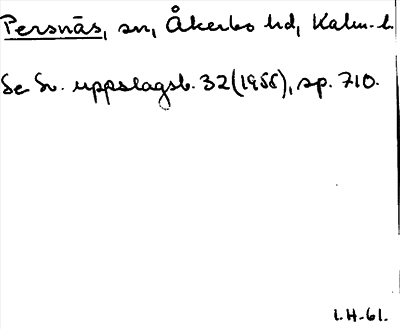 Persnäs, sn, Åkerbo hd, Kalm. l.
Se Sv. uppslagsb. 32 (1955), sp. 710.
I.H-61.